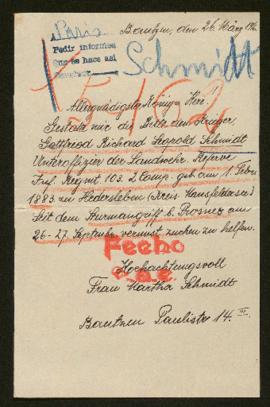 Paris
Bautzen, den 26. März 1916.
Pedir informes
Que se hace asi
Schmidt
Allergnädigster König u. Herr!
Gestatte mir die Bitte den Krieger
Gottfried Richard Leopold Schmidt
Unteroffizier der Landwehr Reserve
Inf. Regmt 103. 2 Comp. geb. am 1. Febr.
1883 zu Hedersleben (Kreis Mansfeldersee)
seit dem Sturmangriff b. Prosnes am
26-27. Septemb. vermisst suchen zu helfen.
Fecho
Hochachtungsvoll
Frau Martha Schmidt
Bautzen Paulistr 14. III.